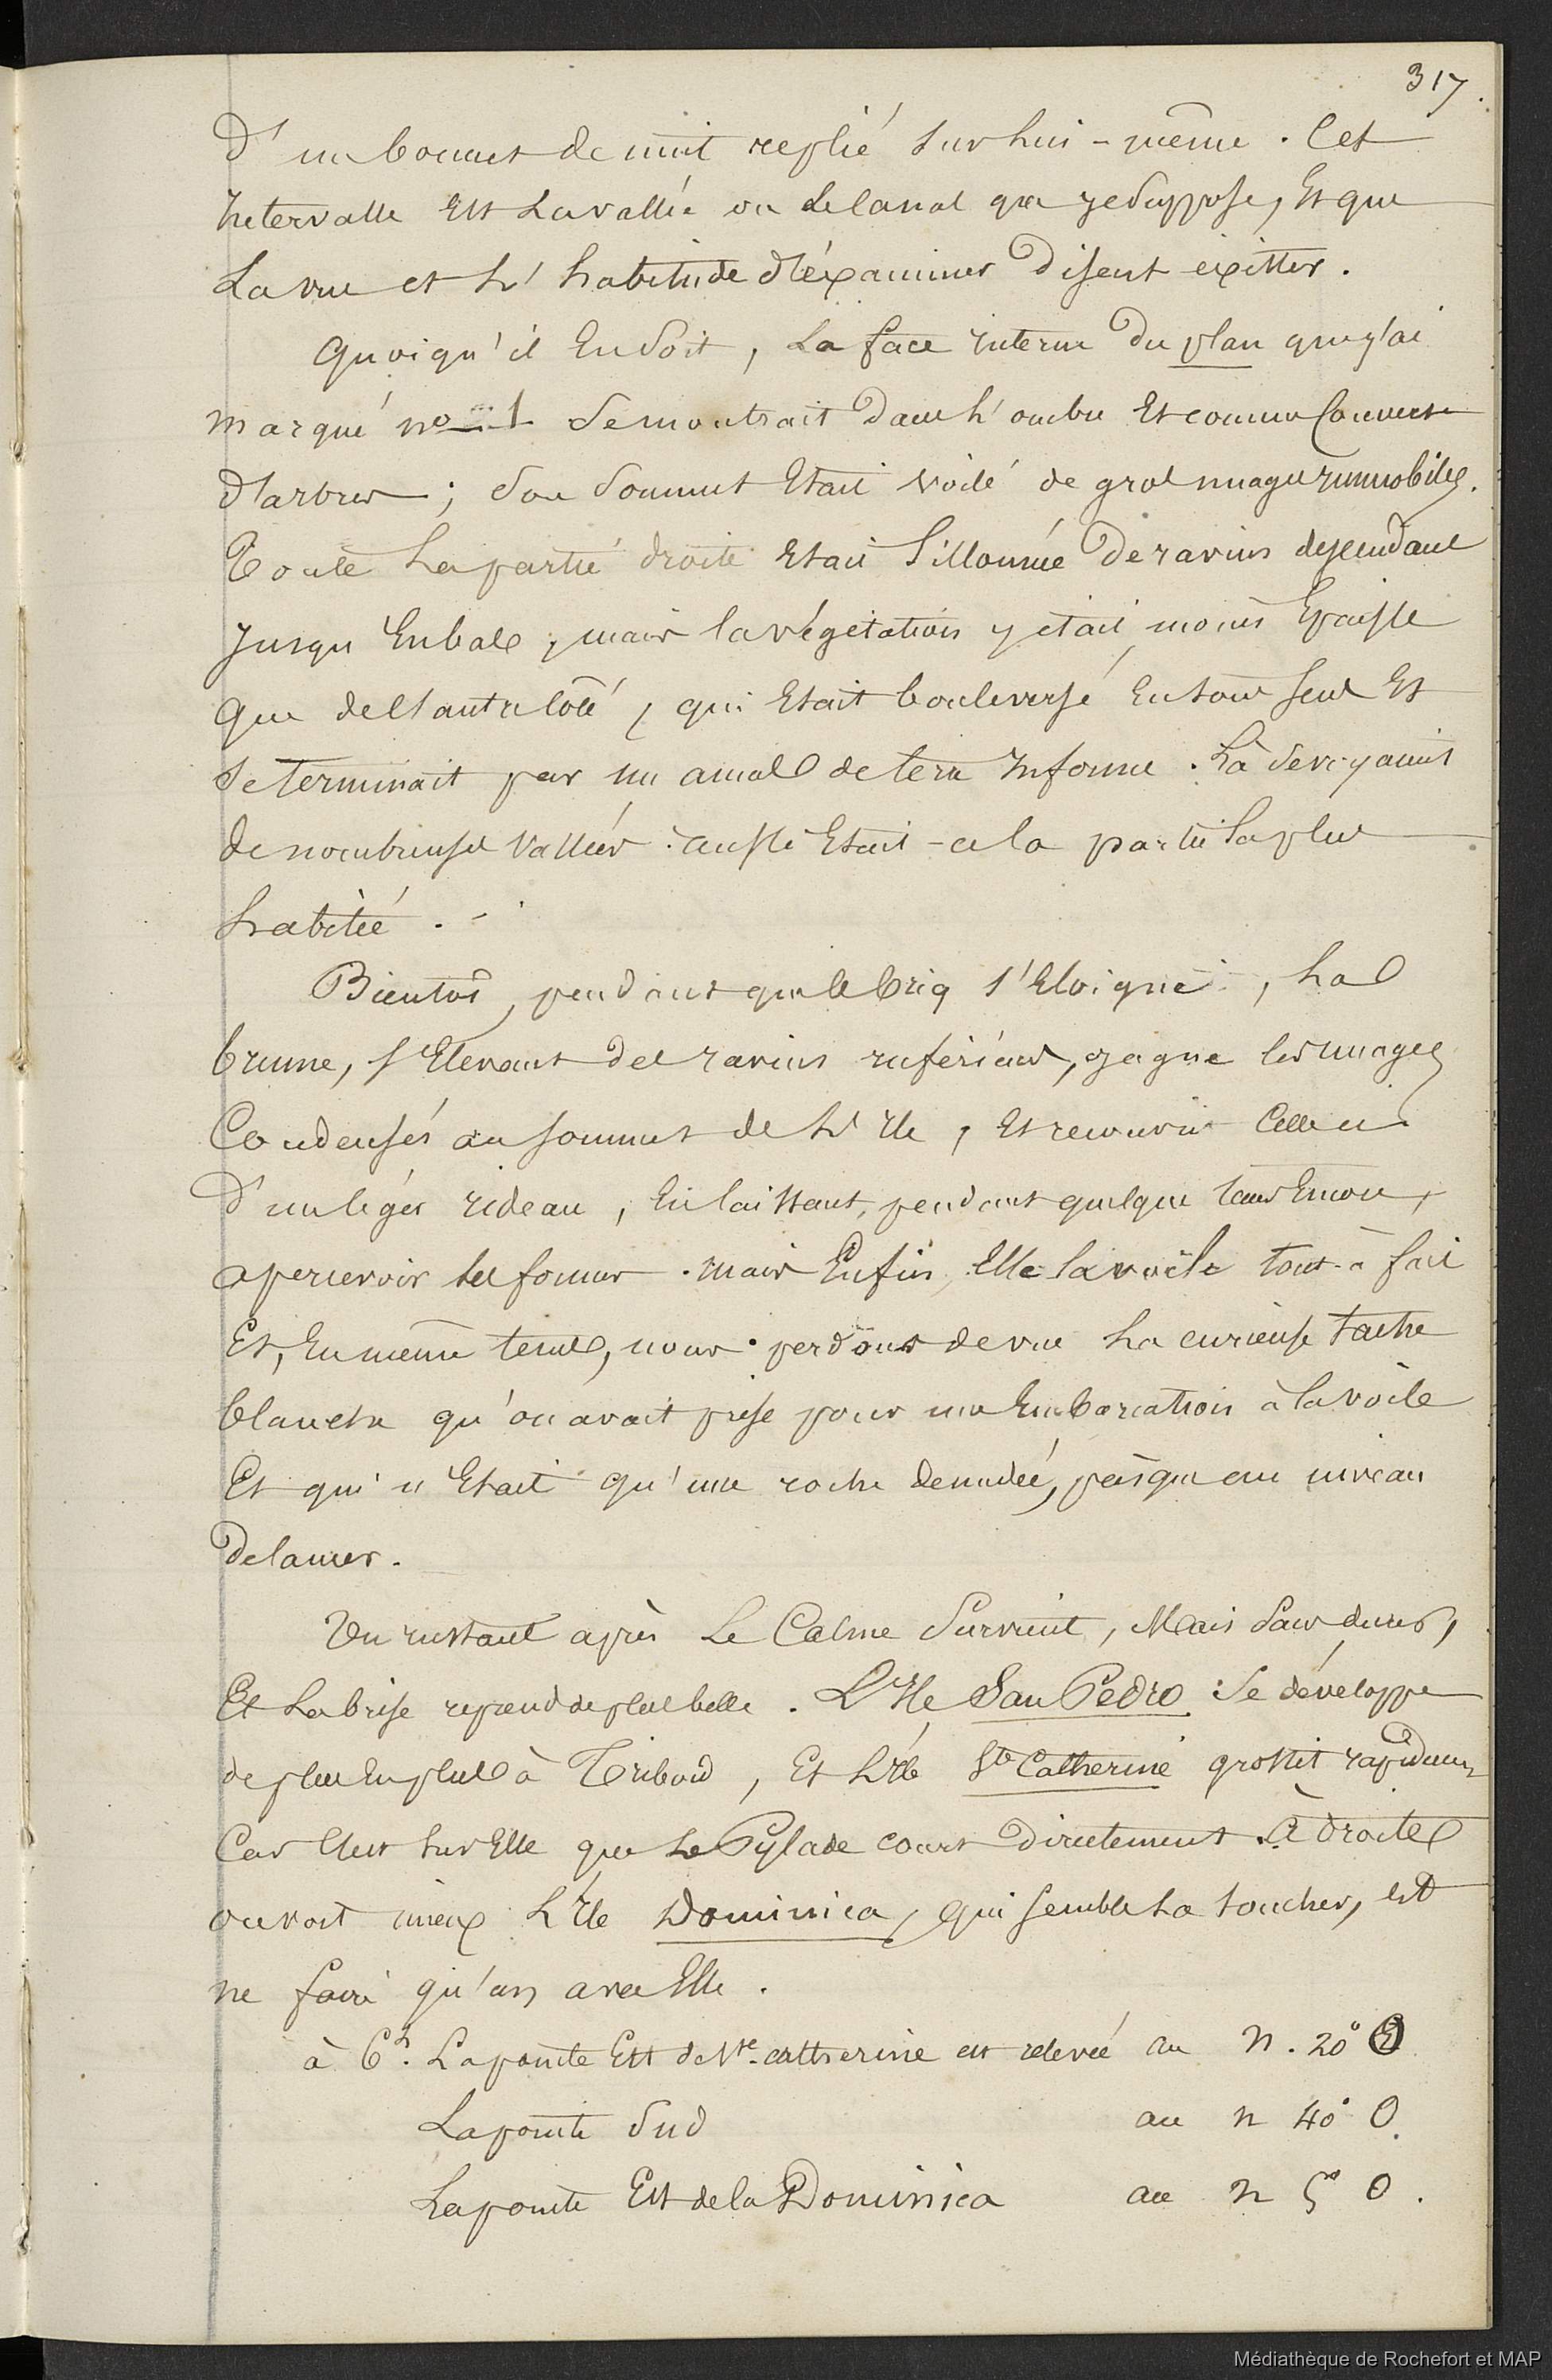 317.
d'un bonnet de nuit replié sur lui-même. Cet
Intervalle Est La vallée ou Le Canal que je Suppose, Et que
La vue et L'habitude d'éxaminer disent éxister.
Quoiqu'il En soit, La face Interne du plan que j'ai
marqué no 1 Se montrait dans L'ombre Et comme Couverte
d'arbres; Son Sommet Etait voilé de gros nuages Immobiles.
Toute La partie droite Etait Sillonnée De ravins descendant
Jusqu'En bas, mais la végétation y était moins Epaisse
que de l'autre Coté, qui Etait bouleversé En tous sens Et
Se terminait par un amas de terre Informe. Là Se voyaient
de nombreuses Vallées : aussi Etait-ce la partie La plus
habitée.
Bientôt, pendant que le brig s'Eloigne, La
brume, s'Elevant des ravins Inférieurs, gagne les nuages
Condensés au sommet de L'Ile, Et recouvrir Celle ci
d'un léger rideau, En laissant, pendant quelque tems Encore,
apercevoir ses formes. mais Enfin, Elle la voile tout-à fait
Et, En même tems, nous perdons de vue La curieuse tache
blanche qu'on avait prise pour une Embarcation à la voile
Et qui n'Etait qu'une roche dénudée, presque au niveau
De la mer.
Un instant après Le Calme Survient, Mais Sans durer,
Et La brise reprend de plus belle. L'Ile San Pedro Se développe
de plus En plus à Tribord, Et L'Ile Ste Catherine grossit rapidement
Car C'est Sur Elle que Le Pylade court Directement. à droite
on voit mieux L'Ile Dominica, qui semble La toucher, Et
ne faire qu'un avec Elle.
à 6h. La pointe Est de Ste. Catherine est relevée au N. 20° O
La pointe Sud au N 40° O.
La pointe Est de la Dominica au N 5° O.
Médiathèque de Rochefort et MAP